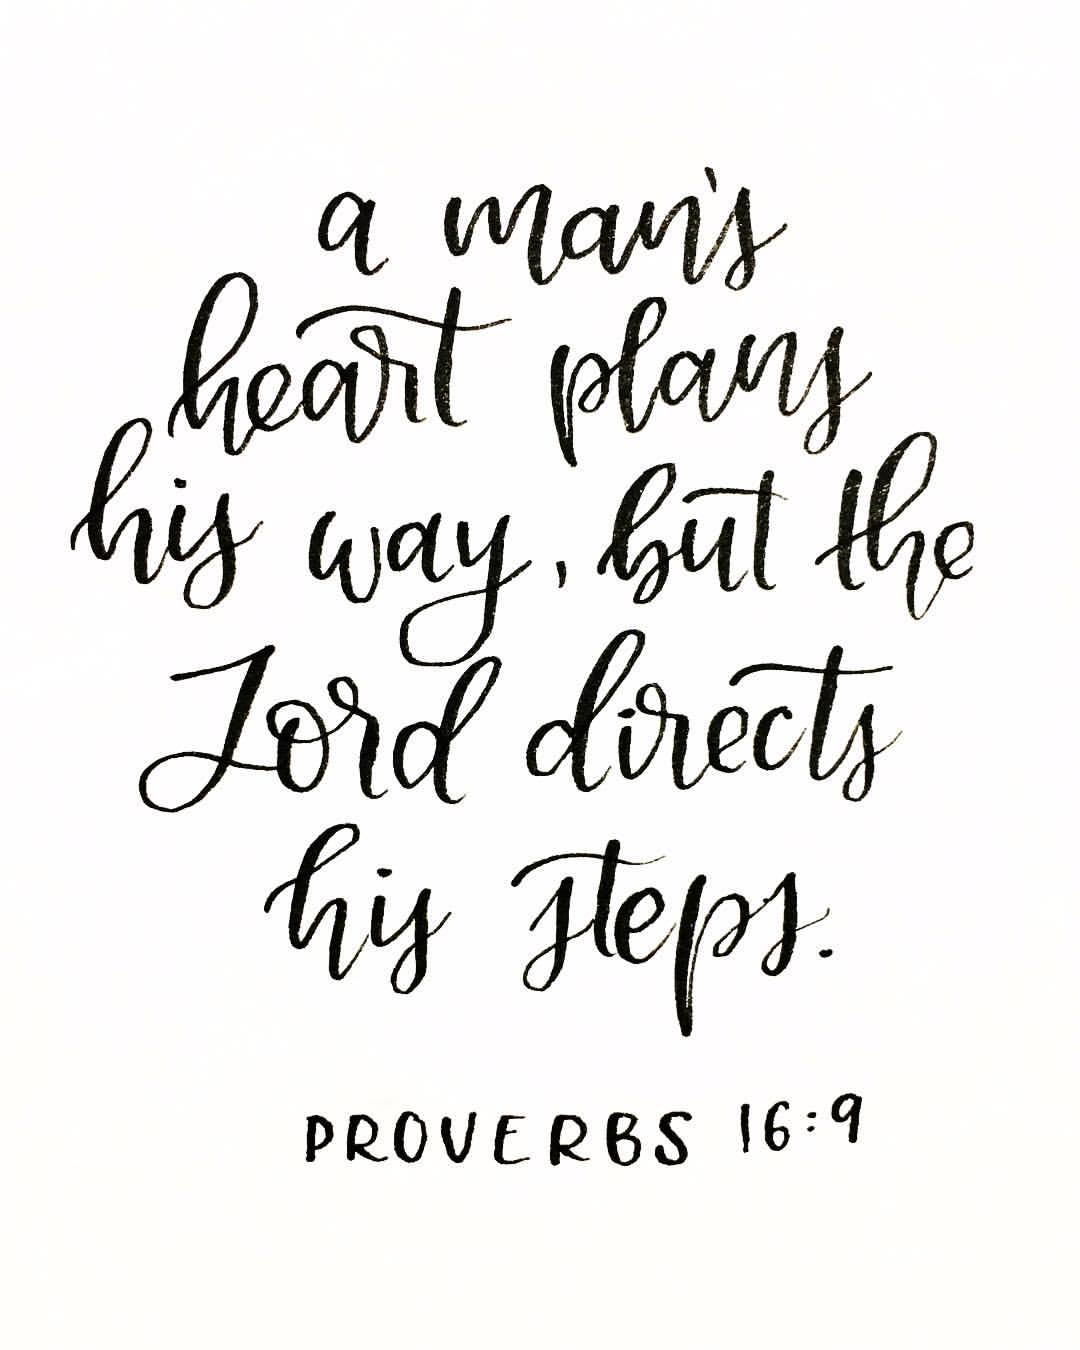 a man's
heart plans
his way, but the
Lord directs
his steps.
PROVERBS 16:9